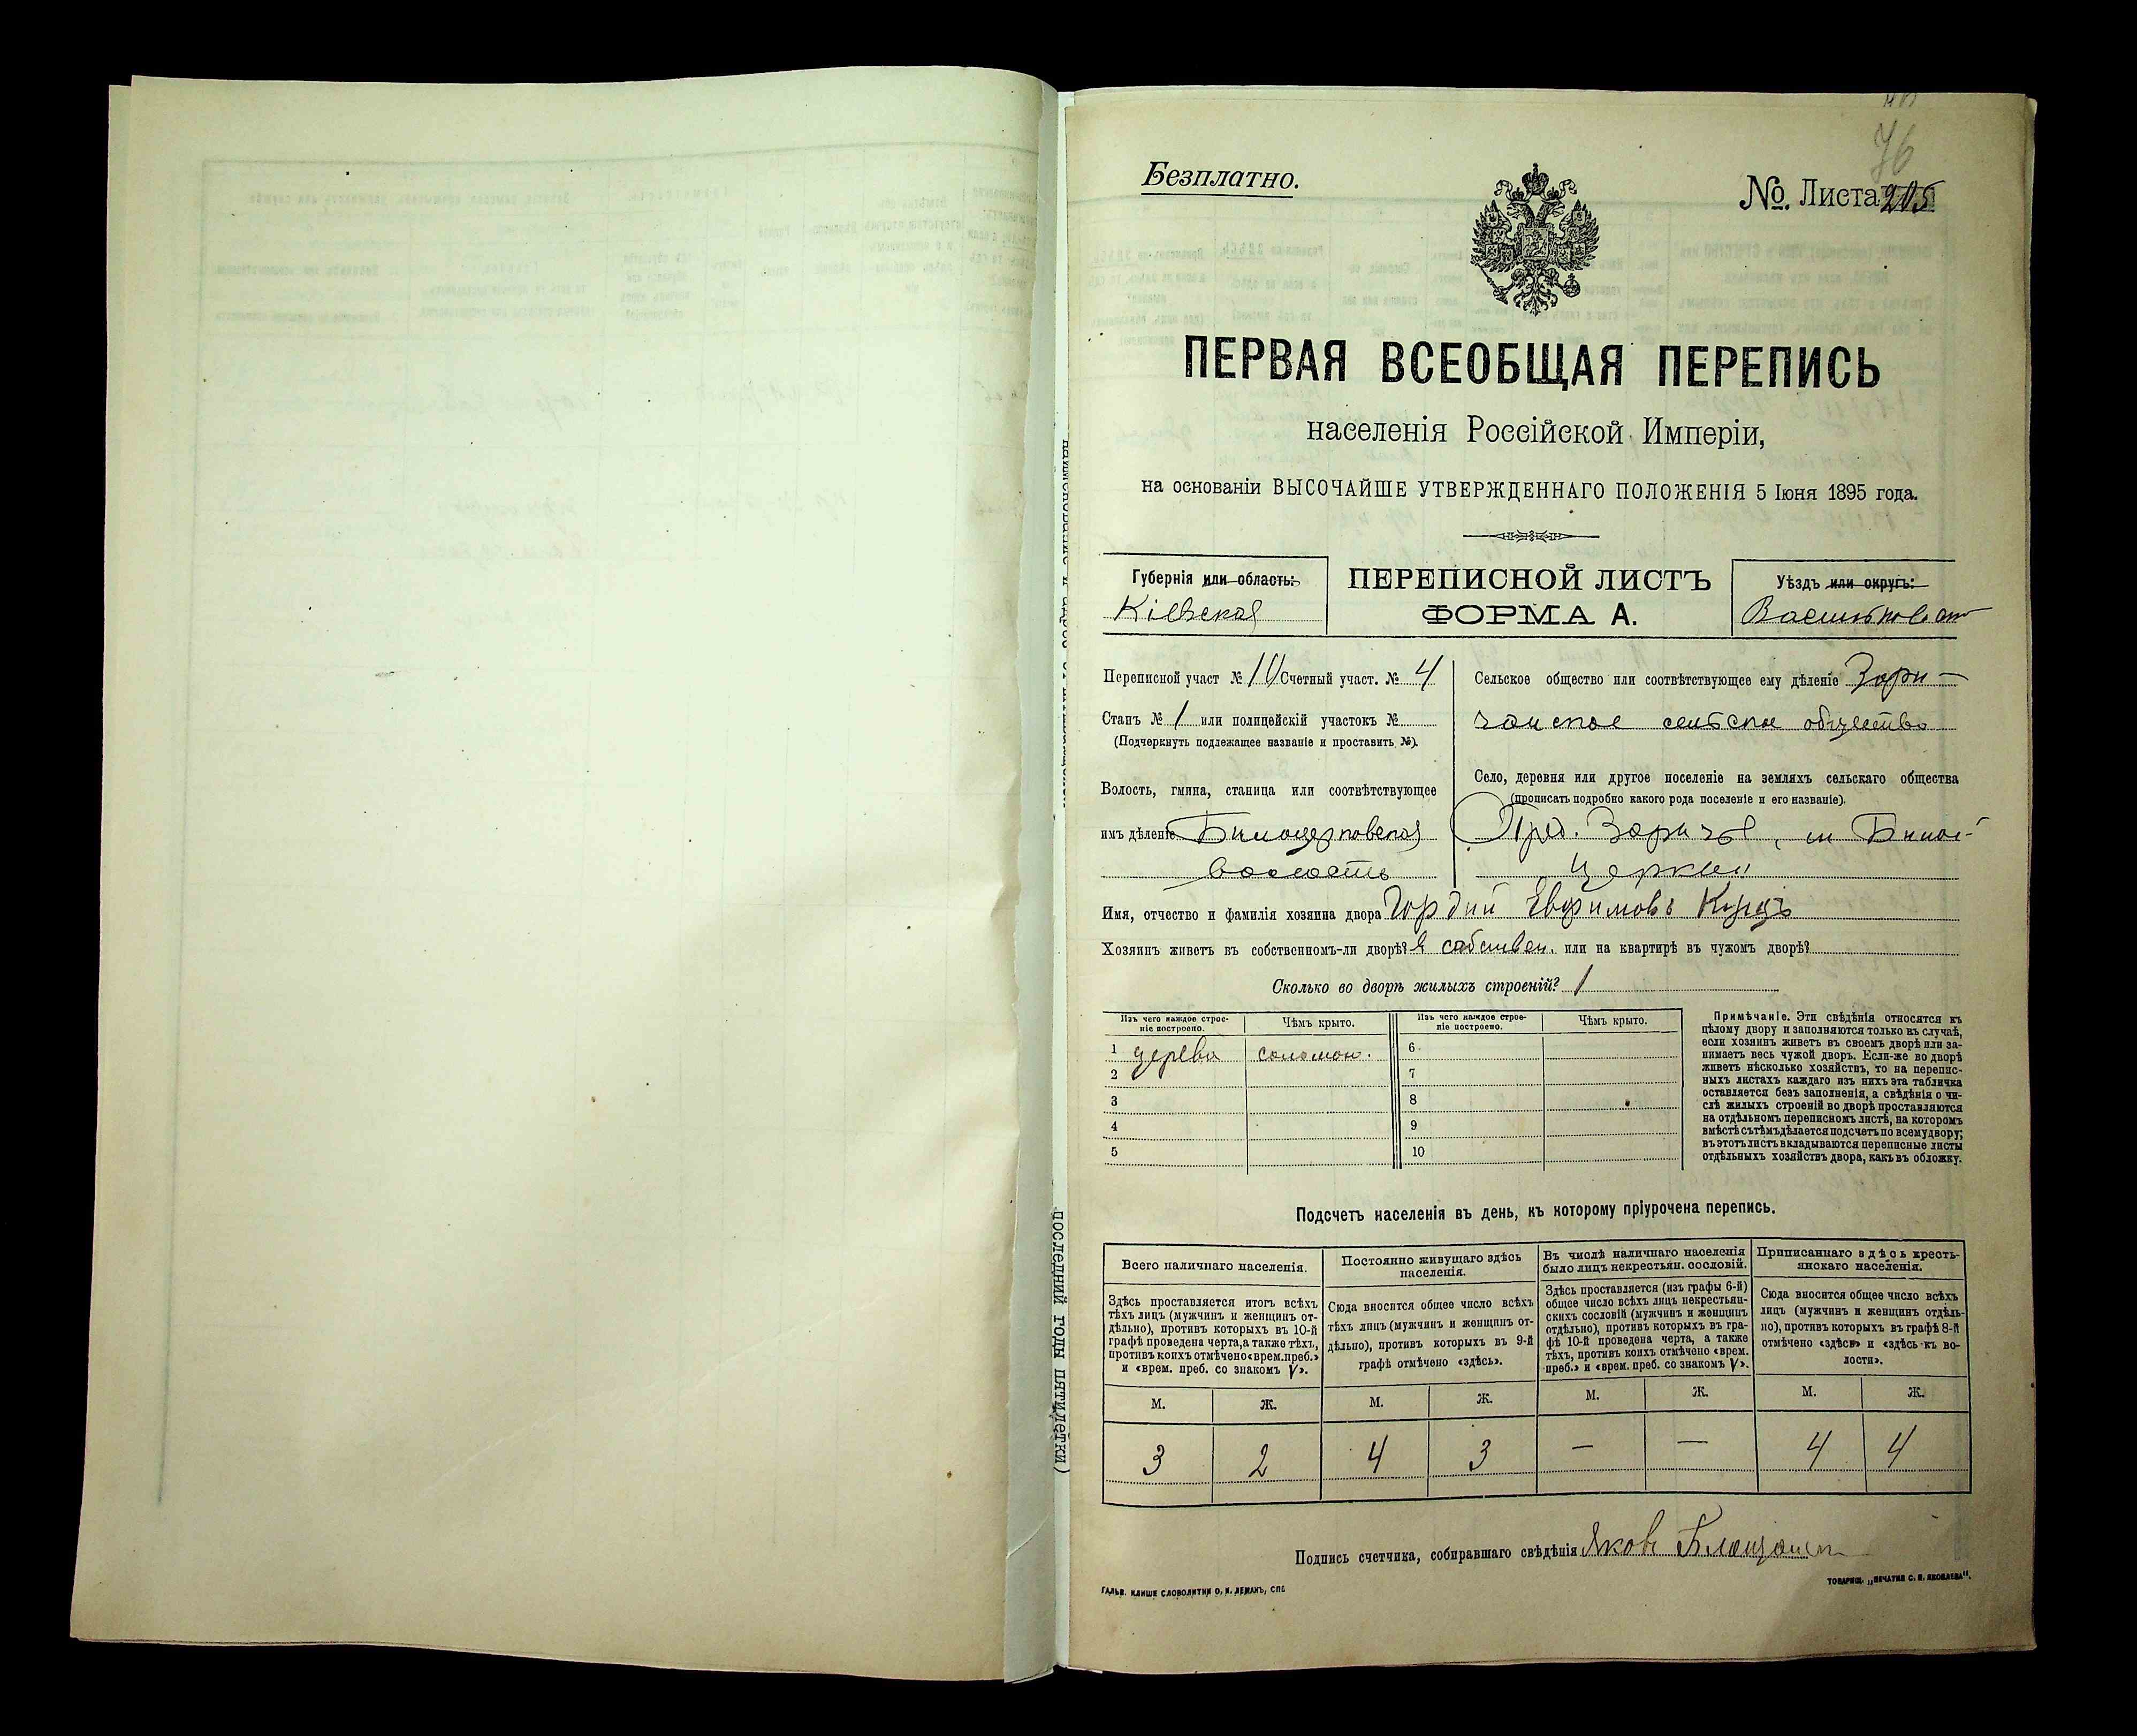 76
Безплатно.
№. Листа 205
ПЕРВАЯ ВСЕОБЩАЯ ПЕРЕПИСЬ
населенія Россійской Имперіи,
на основаніи ВЫСОЧАЙШЕ УТВЕРЖДЕННАГО ПОЛОЖЕНІЯ 5 Іюня 1895 года.
Губернія или область:
Кіевская
ПЕРЕПИСНОЙ ЛИСТЪ
ФОРМА А.
Уѣздъ или округъ:
Переписной участ № 10 Счетный участ. № 4
Станъ № 1 или полицейскій участокъ №
(Подчеркнуть подлежащее названіе и проставить №).
Волость, гмина, станица или соотвѣтствующее
имъ дѣленіе Билоцерковская
волость
Сельское общество или соотвѣтствующее ему дѣленіе Зари-
чанское сельское общество
Село, деревня или другое поселеніе на земляхъ сельскаго общества
(прописать подробно какого рода поселеніе и его названіе).
Пред. Заричье, м Билой-
Церкви
Имя, отчество и фамилія хозяина двора Гордій Евфимовъ
Хозяинъ живетъ въ собственномъ-ли дворѣ? в собствен. или на квартирѣ въ чужомъ дворѣ?
Сколько во дворѣ жилыхъ строеній? 1
Изъ чего каждое строе-
ніе построено.
Чѣмъ крыто.
Изъ чего каждое строе-
ніе построено.
Чѣмъ крыто.
1 дерева соломой. 6
2 7
3 8
4 9
5 10
Примѣчаніе. Эти свѣдѣнія относятся къ
цѣлому двору и заполняются только въ случаѣ,
если хозяинъ живетъ въ своемъ дворѣ или за-
нимаетъ весь чужой дворъ. Если-же во дворѣ
живетъ нѣсколько хозяйствъ, то на перепис-
ныхъ листахъ каждаго изъ нихъ эта табличка
оставляется безъ заполненія, а свѣдѣнія о чи-
слѣ жилыхъ строеній во дворѣ проставляются
на отдѣльномъ переписномъ листѣ, на которомъ
вмѣстѣ съ тѣмъ дѣлается подсчетъ по всему двору;
въ этотъ листъ вкладываются переписные листы
отдѣльныхъ хозяйствъ двора, какъ въ обложку.
Подсчетъ населенія въ день, къ которому пріурочена перепись.
Всего наличнаго населенія.
Здѣсь проставляется итогъ всѣхъ
тѣхъ лицъ (мужчинъ и женщинъ от-
дѣльно), противъ которыхъ въ 10-й
графѣ проведена черта, а также тѣхъ,
противъ коихъ отмѣчено «врем. преб.»
и «врем. преб. со знакомъ V».
Постоянно живущаго здѣсь
населенія.
Сюда вносится общее число всѣхъ
тѣхъ лицъ (мужчинъ и женщинъ от-
дѣльно), противъ которыхъ въ 9-й
графѣ отмѣчено «здѣсь».
Въ числѣ наличнаго населенія
было лицъ некрестьян. сословій.
Здѣсь проставляется (изъ графы 6-й)
общее число всѣхъ лицъ некрестьян-
скихъ сословій (мужчинъ и женщинъ
отдѣльно), противъ которыхъ въ гра-
фѣ 10-й проведена черта, а также
тѣхъ, противъ коихъ отмѣчено «врем.
преб.» и «врем. преб. со знакомъ V».
Приписаннаго здѣсь кресть-
янскаго населенія.
Сюда вносится общее число всѣхъ
лицъ (мужчинъ и женщинъ отдѣль-
но), противъ которыхъ въ графѣ 8-й
отмѣчено «здѣсь» и «здѣсь къ во-
лости».
М. Ж. М. Ж. М. Ж. М. Ж.
3 2 4 3 — — 4 4
Подпись счетчика, собиравшаго свѣдѣнія Яковъ
ГАЛЬВ. КЛИШЕ СЛОВОЛИТНИ О. И. ЛЕМАНЪ, СПБ
ТОВАРИЩ. „ПЕЧАТНЯ С. П. ЯКОВЛЕВА".
последний годы пятилетки)